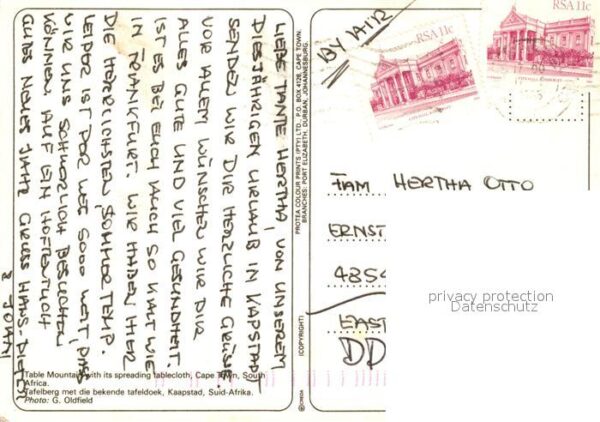 LIEBE TANTE HERTHA, VON UNSEREM
DIESJÄHRIGEN URLAUB IN KAPSTADT
SENDEN WIR DIR HERZLICHE GRÜSSE
VOR ALLEM WÜNSCHEN WIR DIR
ALLES GUTE UND VIEL GESUNDHEIT.
IST ES BEI EUCH AUCH SO KALT WIE
IN FRANKFURT. WIR HABEN HIER
DIE HERRLICHSTEN SOMMERTEMP.
LEIDER IST DER WEG SOOO WEIT, DASS
WIR UNS SCHWERLICH BESUCHEN
KÖNNEN. AUF EIN HOFFENTLICH
GUTES NEUES JAHR GRUSS HANS-DIETER
Table Mountain with its spreading tablecloth, Cape Town, South
Africa.
Tafelberg met die bekende tafeldoek, Kaapstad, Suid-Afrika.
Photo: G. Oldfield
PROTEA COLOUR PRINTS (PTY) LTD., P.O. BOX 4126, CAPE TOWN.
BRANCHES: PORT ELIZABETH, DURBAN, JOHANNESBURG.
(COPYRIGHT)
BY AIR
RSA 11c
RSA 11c
FAM HERTHA OTTO
ERNST
4854
EAST
DD
privacy protection
Datenschutz